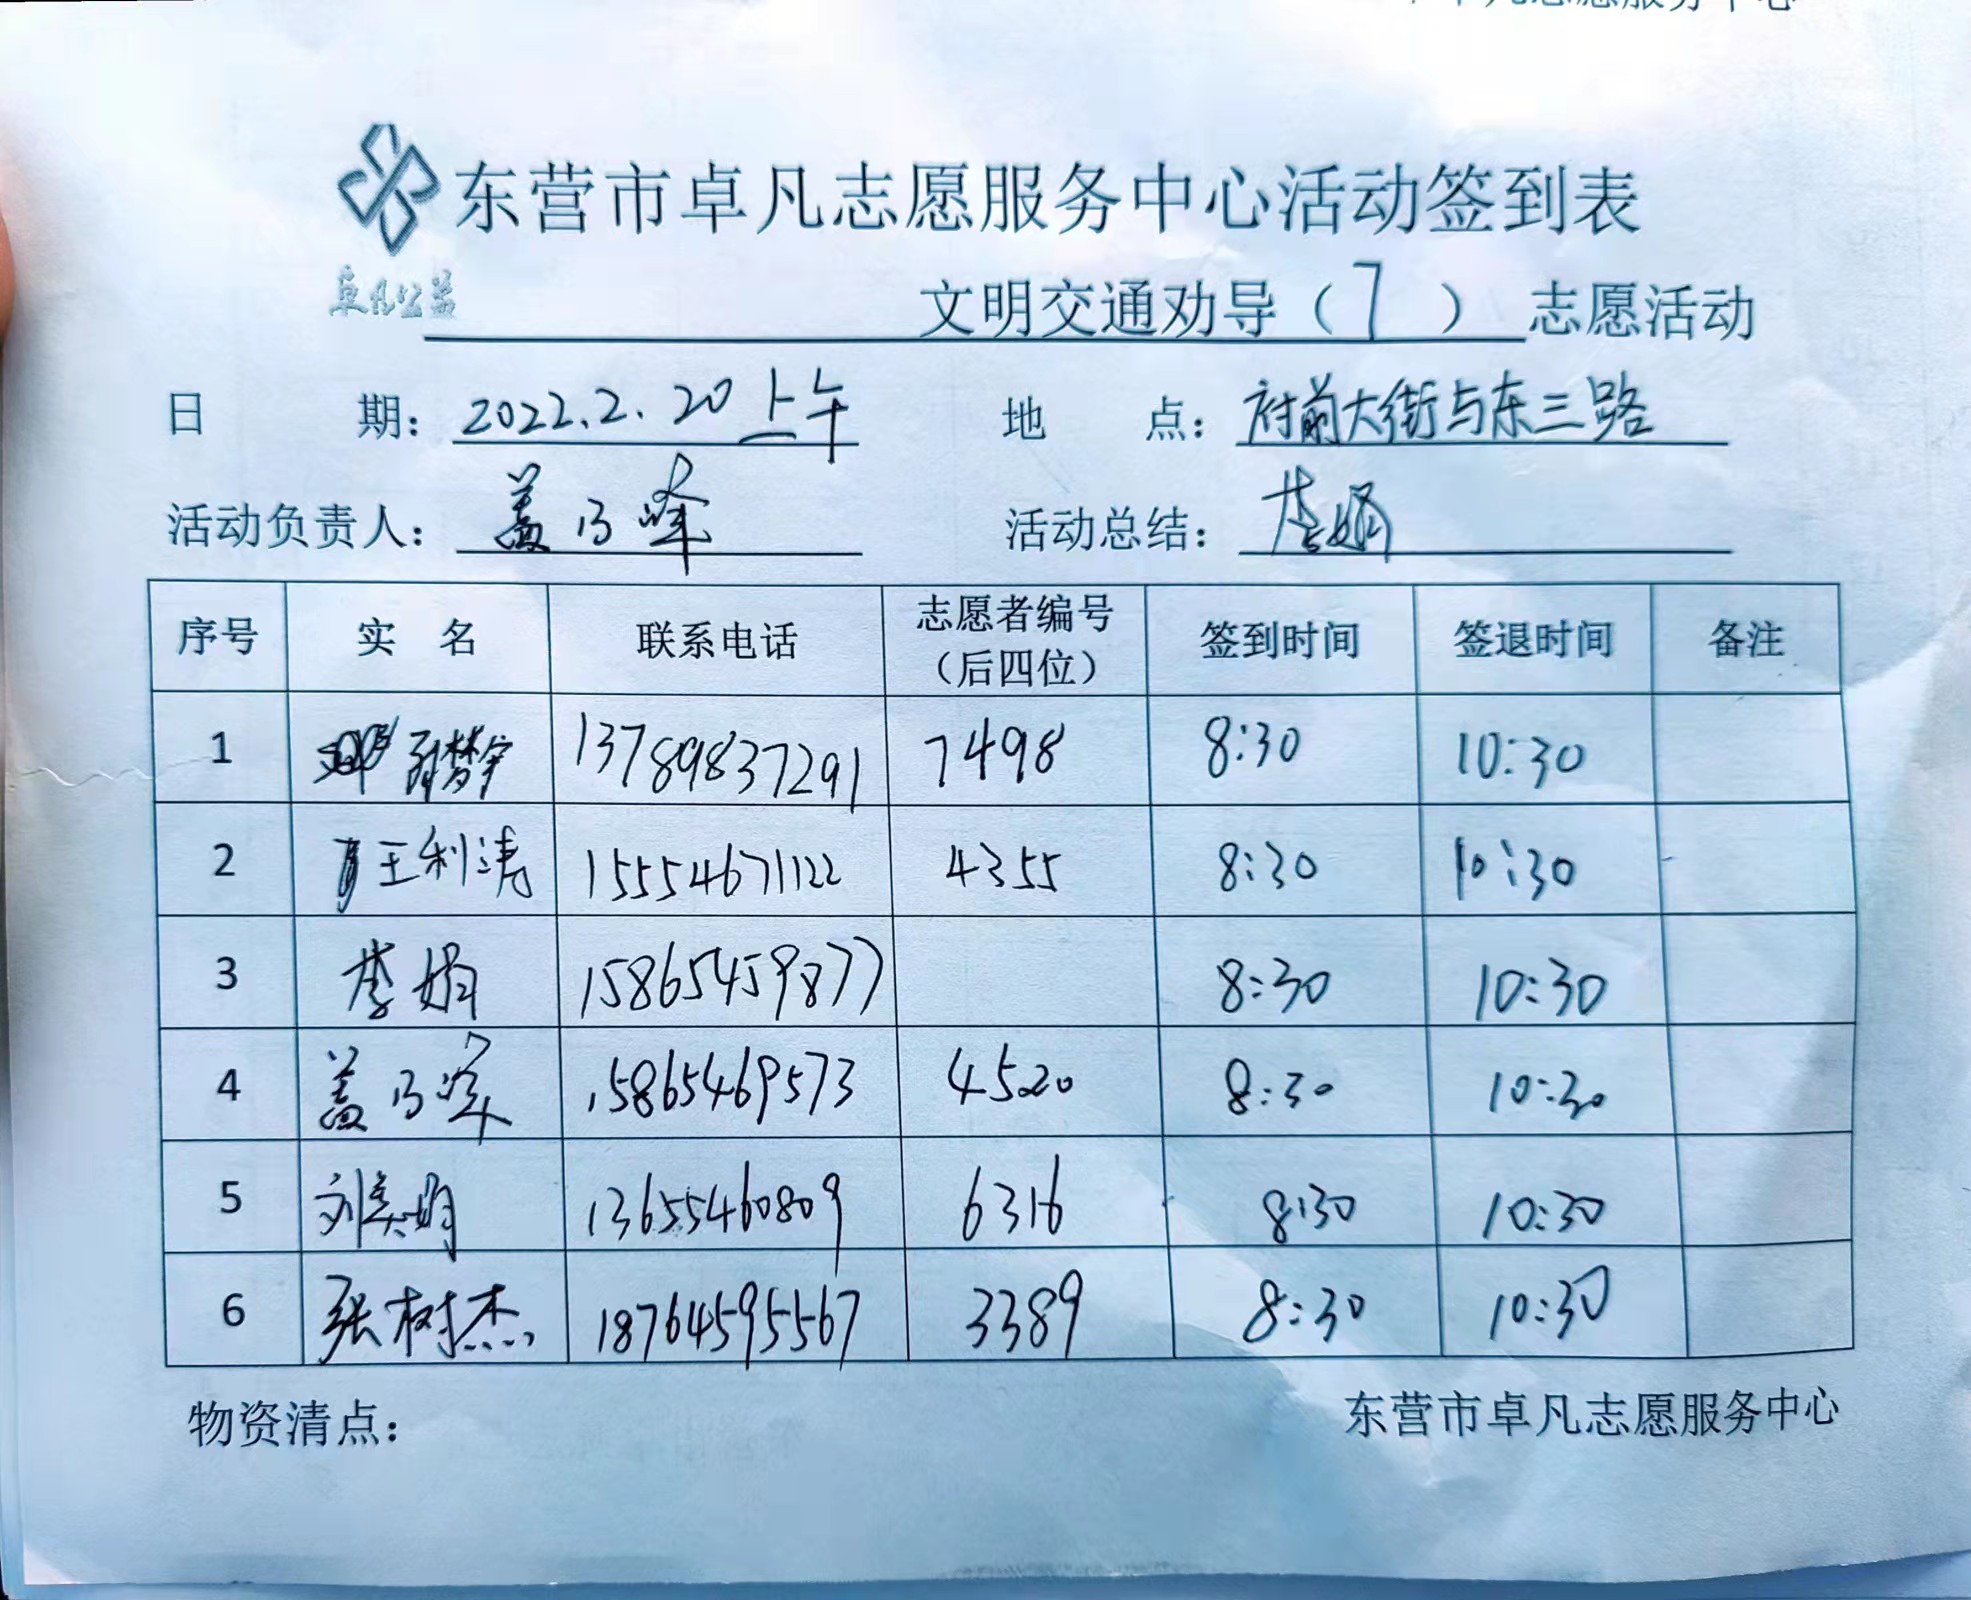 东营市卓凡志愿服务中心活动签到表
卓凡公益
文明交通劝导（7）志愿活动
日 期：2022.2.20上午 地 点：府前大街与东三路
活动负责人：盖乃峰 活动总结：李娟
序号 实 名 联系电话 志愿者编号（后四位） 签到时间 签退时间 备注
1 13789837291 7498 8:30 10:30
2 王利涛 15554671122 4355 8:30 10:30
3 李娟 15865459877 8:30 10:30
4 盖乃峰 15865469573 4520 8:30 10:30
5 刘美娟 13655460809 6316 8:30 10:30
6 张树杰 18764595567 3389 8:30 10:30
物资清点： 东营市卓凡志愿服务中心